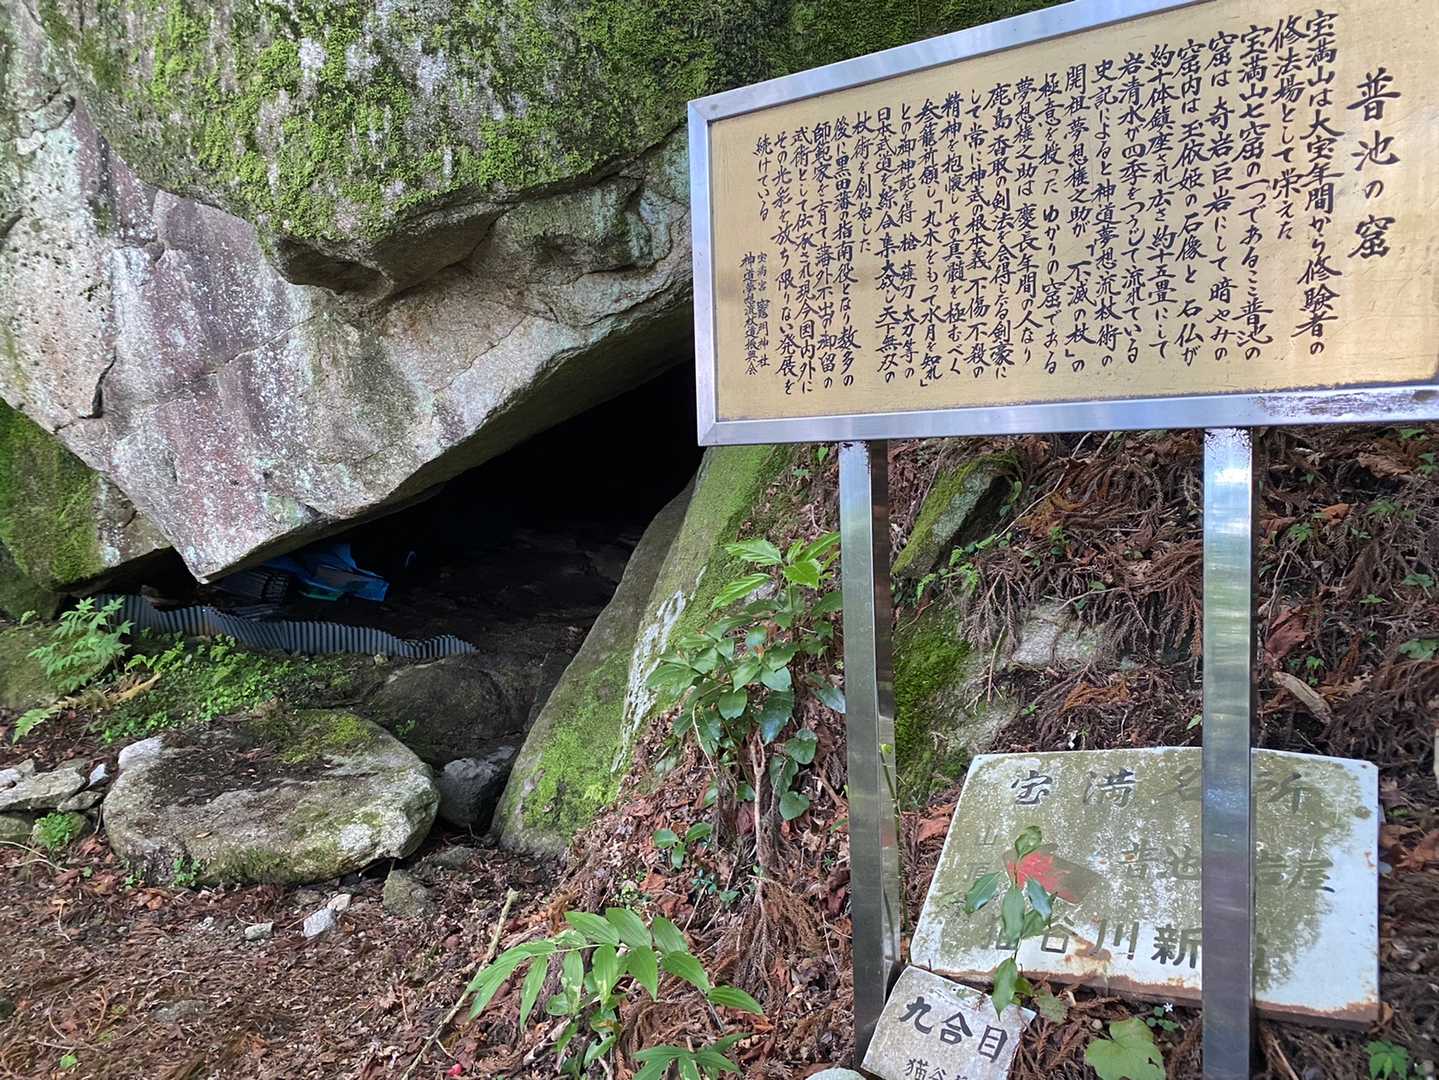 普池の窟
宝満山は大宝年間から修験者の
修法場として栄えた
宝満山七窟の一つであるこ普池の
窟は奇岩巨岩にして暗やみの
窟内は玉依姫の石像と石仏が
約十体鎮座され広さ約十五畳にして
岩清水が四季をつうじて流れている
史記によると神道夢想流杖術の
開祖夢想権之助が「不滅の杖」の
極意を授ったゆかりの窟である
夢想権之助は慶長年間の人なり
鹿島香取の剣法を会得したる剣豪に
して常に神武の根本義不傷不殺の
精神を抱懐しその真髄を極むべく
参籠祈願し「丸木をもって水月を知れ」
との御神託を得槍薙刀太刀等の
日本武道を綜合集大成し天下無双の
杖術を創始した
後に黒田藩の指南役となり数多の
師範家を育て藩外不出の御留の
武術として伝承され現今国内外に
その光彩を放ち限りない発展を
続けている
宝満宮竈門神社
神道夢想流杖道振興会
宝満名所
普池岩屋
谷川新
九合目
猫谷